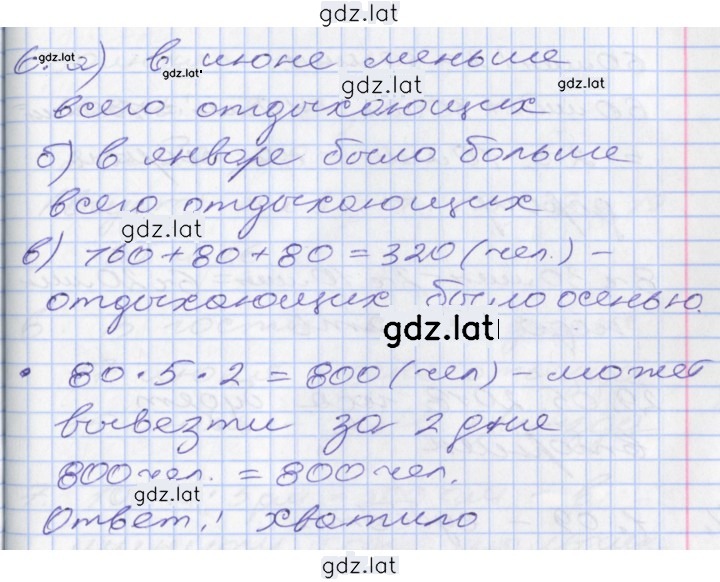 gdz.lat
6. а) в июне меньше
gdz.lat
gdz.lat
gdz.lat
gdz.lat
всего отдыхающих
б) в январе было больше
всего отдыхающих
gdz.lat
в) 160 + 80 + 80 = 320 (чел.) –
отдыхающих было осенью.
gdz.lat
• 80 · 5 · 2 = 800 (чел) – может
вывезти за 2 дне
800 чел. = 800 чел.
gdz.lat
Ответ: хватило
gdz.lat